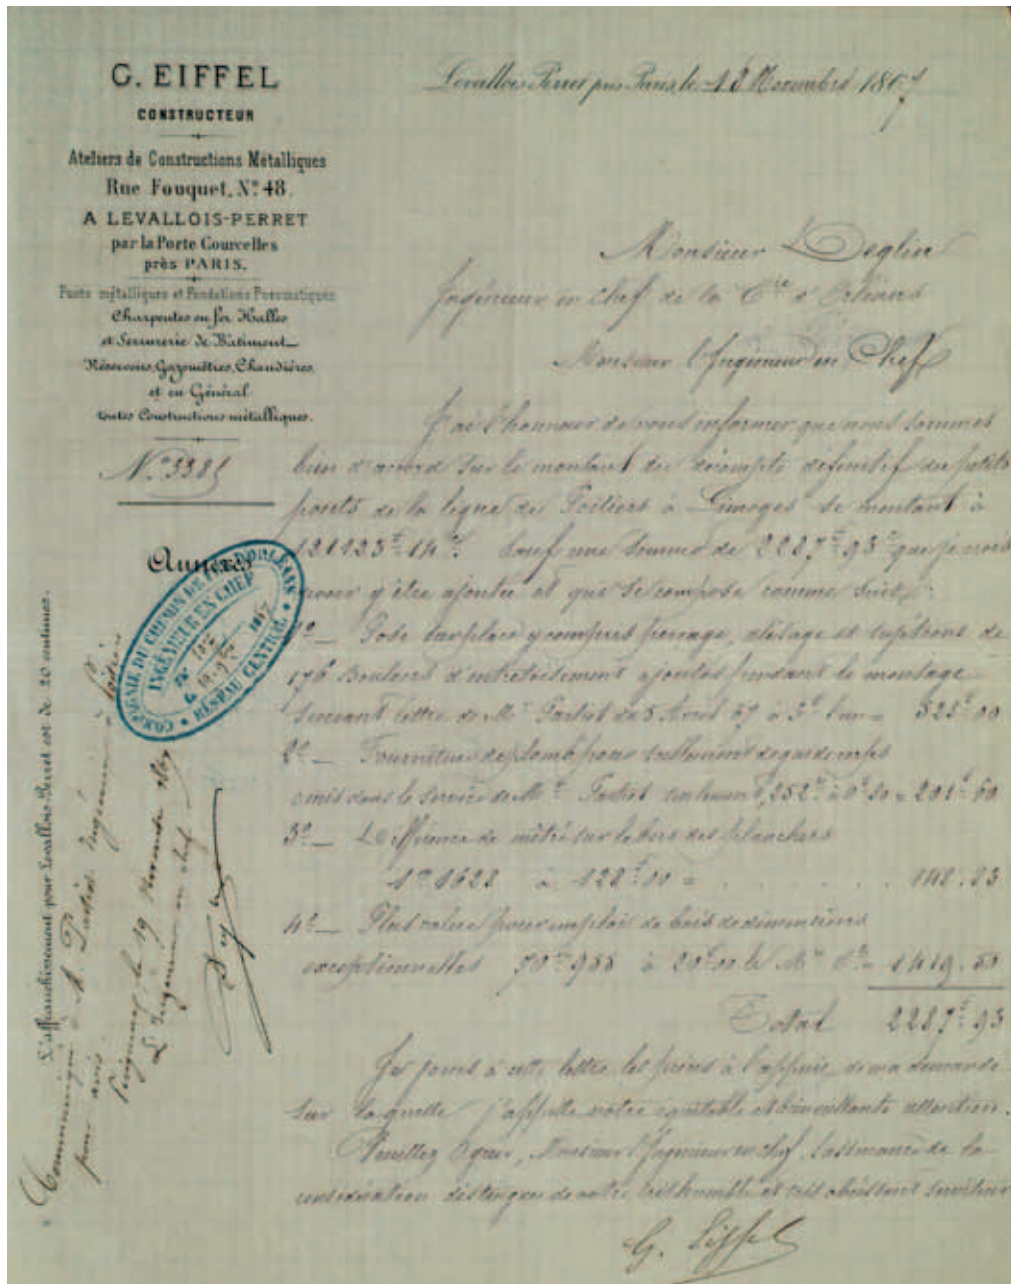 G. EIFFEL
CONSTRUCTEUR
Ateliers de Constructions Métalliques
Rue Fouquet, Nº 48.
A LEVALLOIS-PERRET
par la Porte Courcelles
près PARIS.
Ponts métalliques et Fondations Pneumatiques
Charpentes en fer Halles
et Serrurerie de Bâtiment
Réservoirs, Gazomètres, Chaudières,
et en Général
toutes Constructions métalliques.
Nº 3385
Annexes
COMPAGNIE DU CHEMIN DE FER D'ORLÉANS
INGÉNIEUR EN CHEF
RÉSEAU CENTRAL
L'affranchissement pour Levallois-Perret est de 20 centimes.
Communiqué à M. Ingénieur à
pour avis.
le 19 Novembre 1867
L'Ingénieur en chef
Levallois-Perret près Paris, le 18 Novembre 1867
Monsieur Deglin
Ingénieur en chef de la Cie d'Orléans
Monsieur l'Ingénieur en Chef
J'ai l'honneur de vous informer que nous sommes
bien d'accord sur le montant du décompte définitif des petits
ponts de la ligne de Poitiers à Limoges se montant à
121123f 14c. Sauf une somme de 2287f 93c que je
y être ajoutée et qui se compose comme suit :
1º _ Pose sur place y compris perçage, alésage et de
176 Boulons d'entretoisement ajoutés pendant le montage
suivant lettre de Mr du 8 Avril 67 à 3f l'un = 528f 00
2º _ Fourniture de plomb pour scellement de garde corps
omis dans le service de Mr = 201f 60
3º _ Différence de métré sur le bois des planchers
1m 1628 à 128f 00 = . . . . . 148.83
4º _ Plus value pour emploi de bois de dimensions
exceptionnelles 70m 988 à 20f 00 le = 1419.50
Total 2287f 93
Je joins à cette lettre les pièces à l'appui de ma demande
sur laquelle j'appelle votre équitable et bienveillante attention.
Veuillez agréer, Monsieur l'Ingénieur en chef, l'assurance de la
considération distinguée de votre très humble et très obéissant serviteur
G. Eiffel